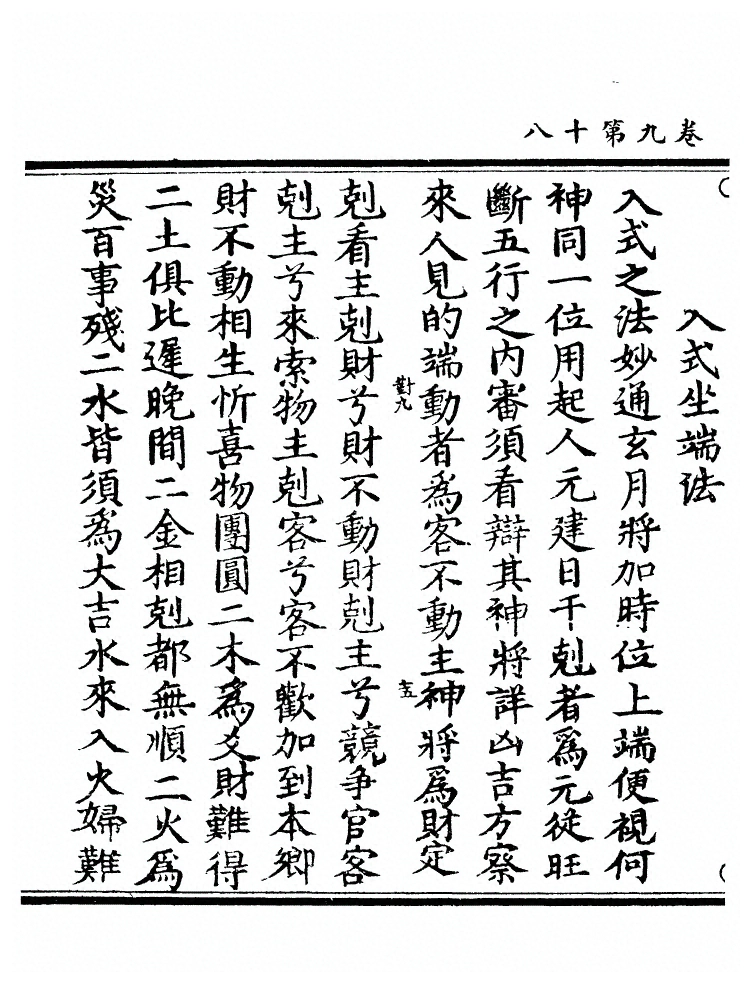 卷九第十八
入式坐端法
入式之法妙通玄月將加時位上端便視何
神同一位用起人元建日干剋者為元從旺
斷五行之内審須看辯其神將詳凶吉方察
來人見的端動者為客不動主神將為財定
對九
十五
剋看主剋財兮財不動財剋主兮競爭官客
剋主兮來索物主剋客兮客不歡加到本鄉
財不動相生忻喜物團圓二木為爻財難得
二土俱比遲晚間二金相剋都無順二火為
災百事殘二水皆須為大吉水來入火婦難